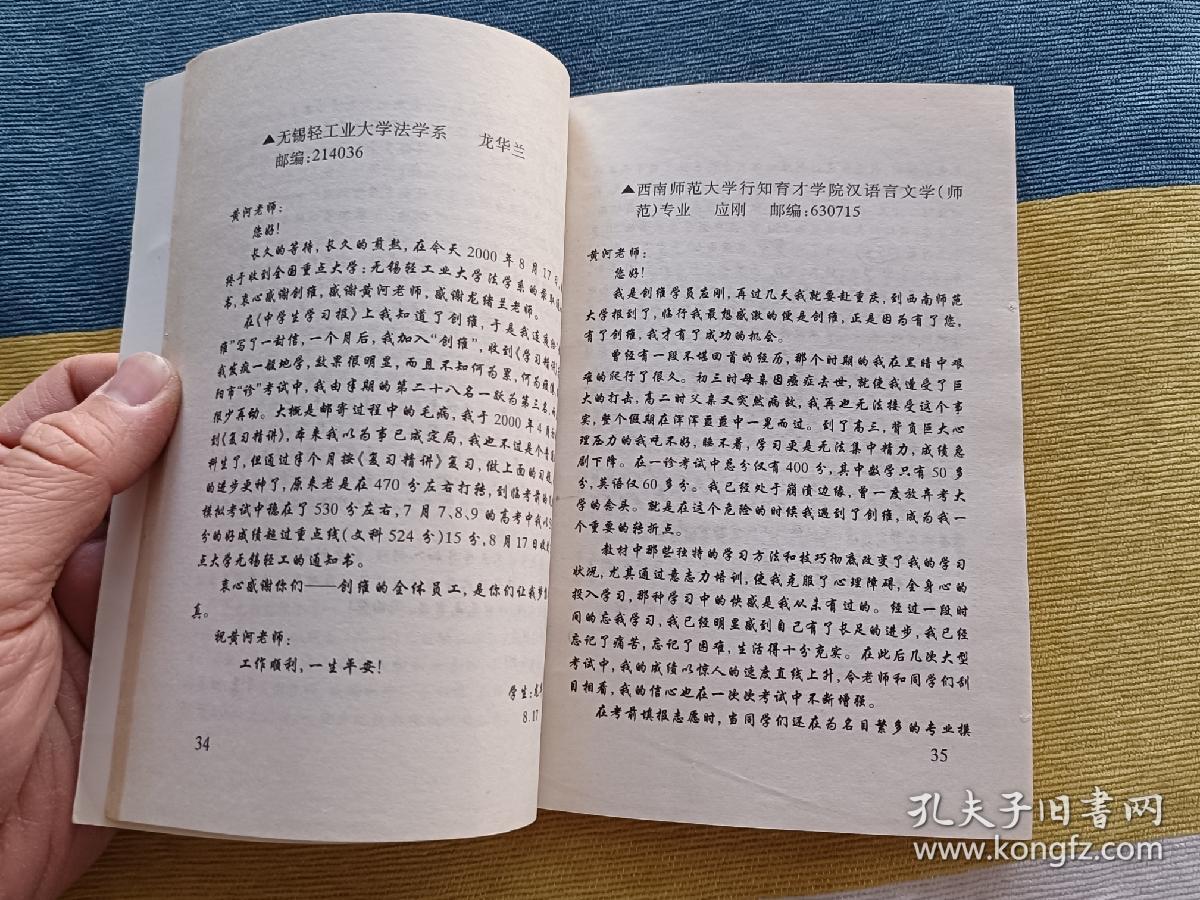 ▲无锡轻工业大学法学系 龙华兰
邮编:214036
黄河老师:
您好!
长久的等待,长久的煎熬,在今天 2000 年 8 月 17 日
终于收到全国重点大学:无锡轻工业大学法学系的录取通
书,衷心感谢创维,感谢黄河老师,感谢龙绪兰老师。
在《中学生学习报》上我知道了创维,于是我连夜给
维”写了一封信,一个月后,我加入“创维”,收到《学习精讲
我发疯一般地学,效果很明显,而且不知何为累,何为疲
阳市“诊”考试中,我由半期的第二十八名一跃为第三名,
很少再动。大概是邮寄过程中的毛病,我于 2000 年 4 月
到《复习精讲》,本来我以为事已成定局,我也不过是个普
科生了,但通过半个月按《复习精讲》复习,做上面的习题,
的进步更神了,原来老是在 470 分左右打转,到临考前的
模拟考试中稳在了 530 分左右,7 月 7、8、9 的高考中我以
分的好成绩超过重点线(文科 524 分)15 分,8 月 17 日收
点大学无锡轻工的通知书。
衷心感谢你们——创维的全体员工,是你们让我梦
真。
祝黄河老师:
工作顺利,一生平安!
学生:龙
8.17
34
▲西南师范大学行知育才学院汉语言文学(师
范)专业 应刚 邮编:630715
黄河老师:
您好!
我是创维学员应刚,再过几天我就要赴重庆,到西南师范
大学报到了,临行我最想感激的便是创维,正是因为有了您,
有了创维,我才有了成功的机会。
曾经有一段不堪回首的经历,那个时期的我在黑暗中艰
难的爬行了很久。初三时母亲因癌症去世,就使我遭受了巨
大的打击,高二时父亲又突然病故,我再也无法接受这个事
实,整个假期在浑浑噩噩中一晃而过。到了高三,背负巨大心
理压力的我吃不好,睡不着,学习更是无法集中精力,成绩急
剧下降。在一诊考试中总分仅有 400 分,其中数学只有 50 多
分,英语仅 60 多分。我已经处于崩溃边缘,曾一度放弃考大
学的念头。就是在这个危险的时候我遇到了创维,成为我一
个重要的转折点。
教材中那些独特的学习方法和技巧彻底改变了我的学习
状况,尤其通过意志力培训,使我克服了心理障碍,全身心的
投入学习,那种学习中的快感是我从未有过的。经过一段时
间的忘我学习,我已经明显感到自己有了长足的进步,我已经
忘记了痛苦,忘记了困难,生活得十分充实。在此后几次大型
考试中,我的成绩以惊人的速度直线上升,令老师和同学们刮
目相看,我的信心也在一次次考试中不断增强。
在考前填报志愿时,当同学们还在为名目繁多的专业摸
35
孔夫子旧书网
www.kongfz.com